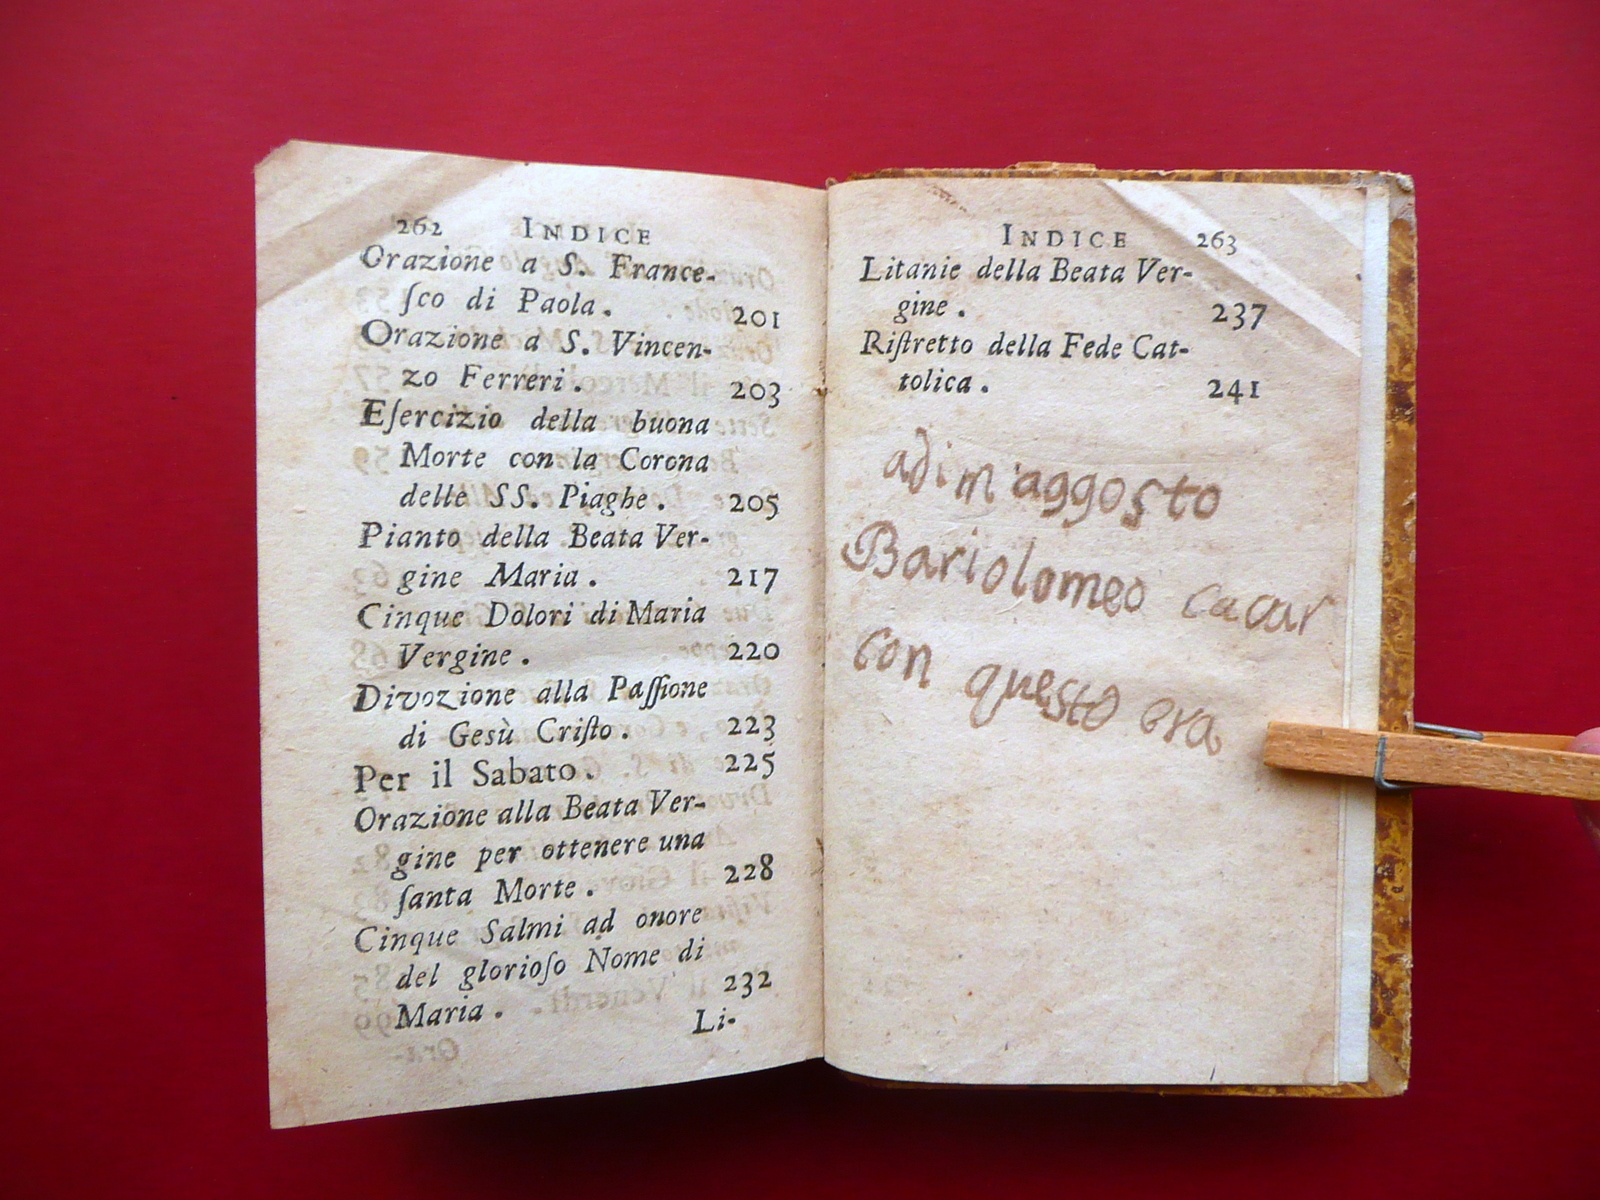 262 INDICE
Orazione a S. France-
ſco di Paola. 201
Orazione a S. Vincen-
zo Ferreri. 203
Eſercizio della buona
Morte con la Corona
delle SS. Piaghe. 205
Pianto della Beata Ver-
gine Maria. 217
Cinque Dolori di Maria
Vergine. 220
Divozione alla Paſſione
di Gesù Criſto. 223
Per il Sabato. 225
Orazione alla Beata Ver-
gine per ottenere una
ſanta Morte. 228
Cinque Salmi ad onore
del glorioſo Nome di
Maria. 232
Li-
INDICE 263
Litanie della Beata Ver-
gine. 237
Riſtretto della Fede Cat-
tolica. 241
adi m aggosto
Bariolomeo
con questo ora